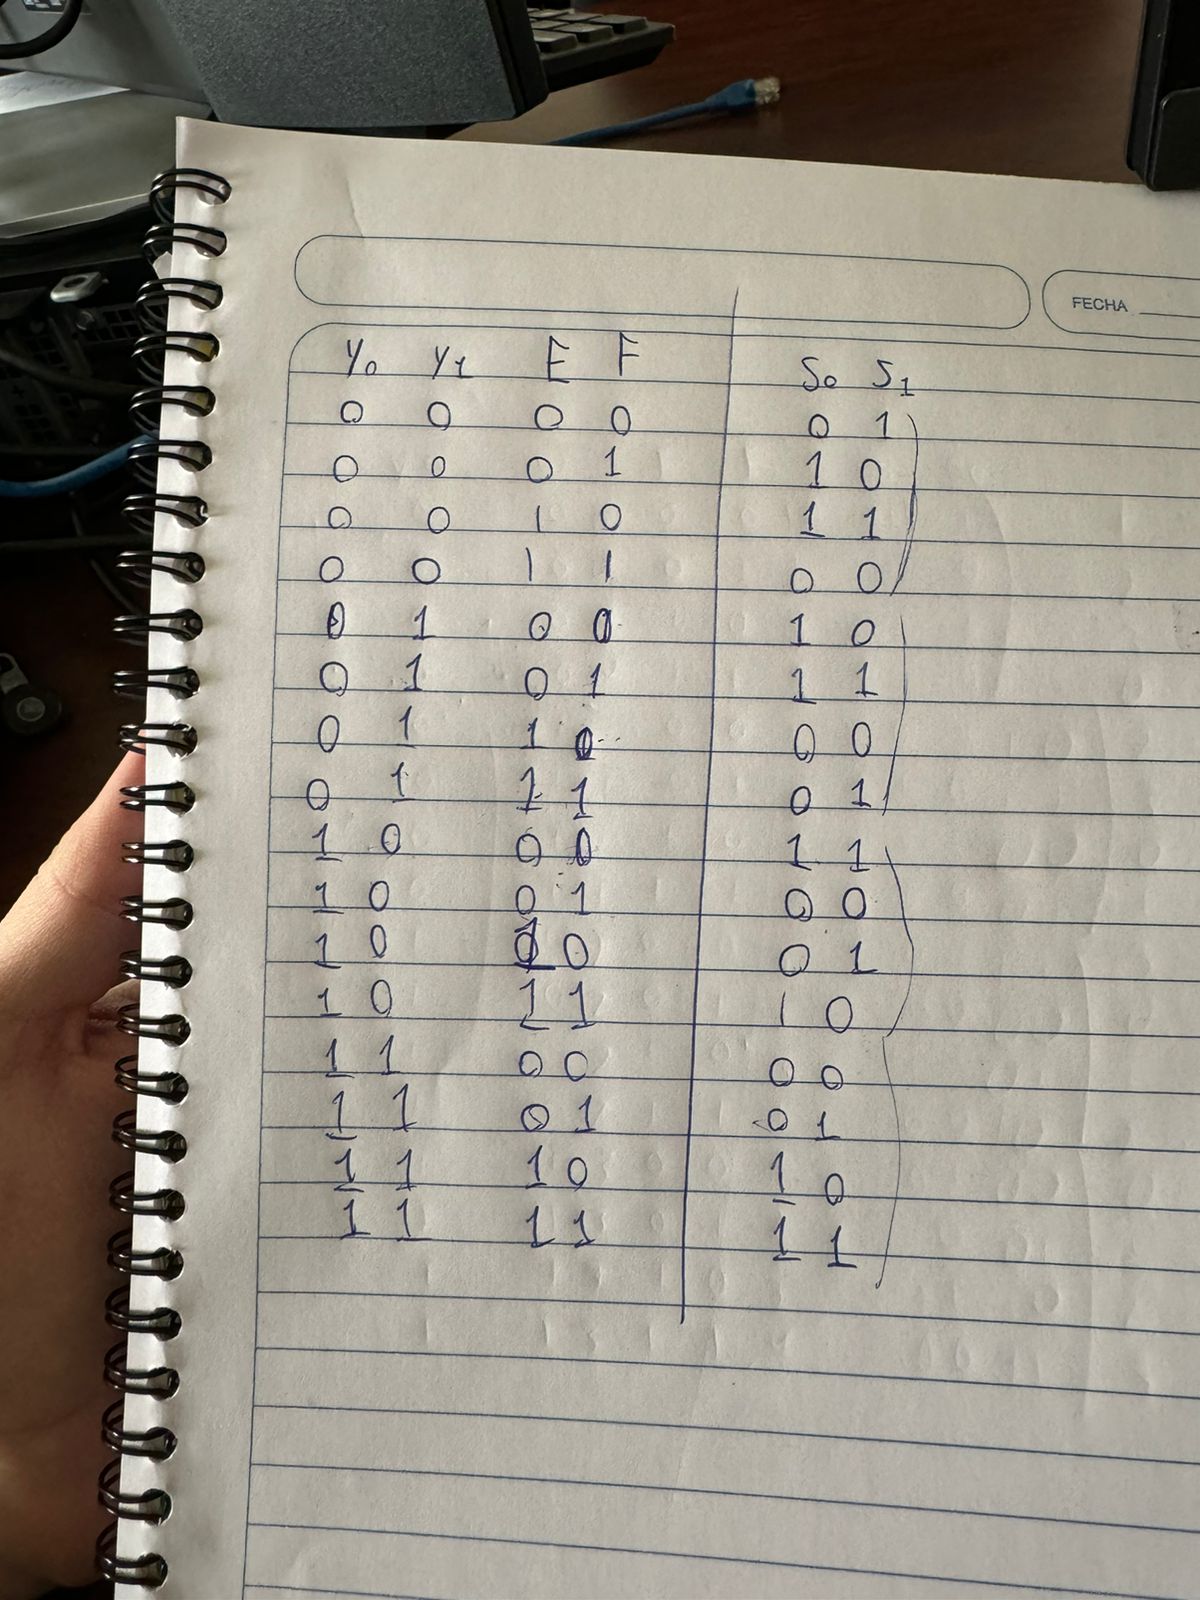 FECHA
Y0 Y1 E F S0 S1
0 0 0 0 0 1
0 0 0 1 1 0
0 0 1 0 1 1
0 0 1 1 0 0
0 1 0 0 1 0
0 1 0 1 1 1
0 1 1 0 0 0
0 1 1 1 0 1
1 0 0 0 1 1
1 0 0 1 0 0
1 0 1 0 0 1
1 0 1 1 1 0
1 1 0 0 0 0
1 1 0 1 0 1
1 1 1 0 1 0
1 1 1 1 1 1